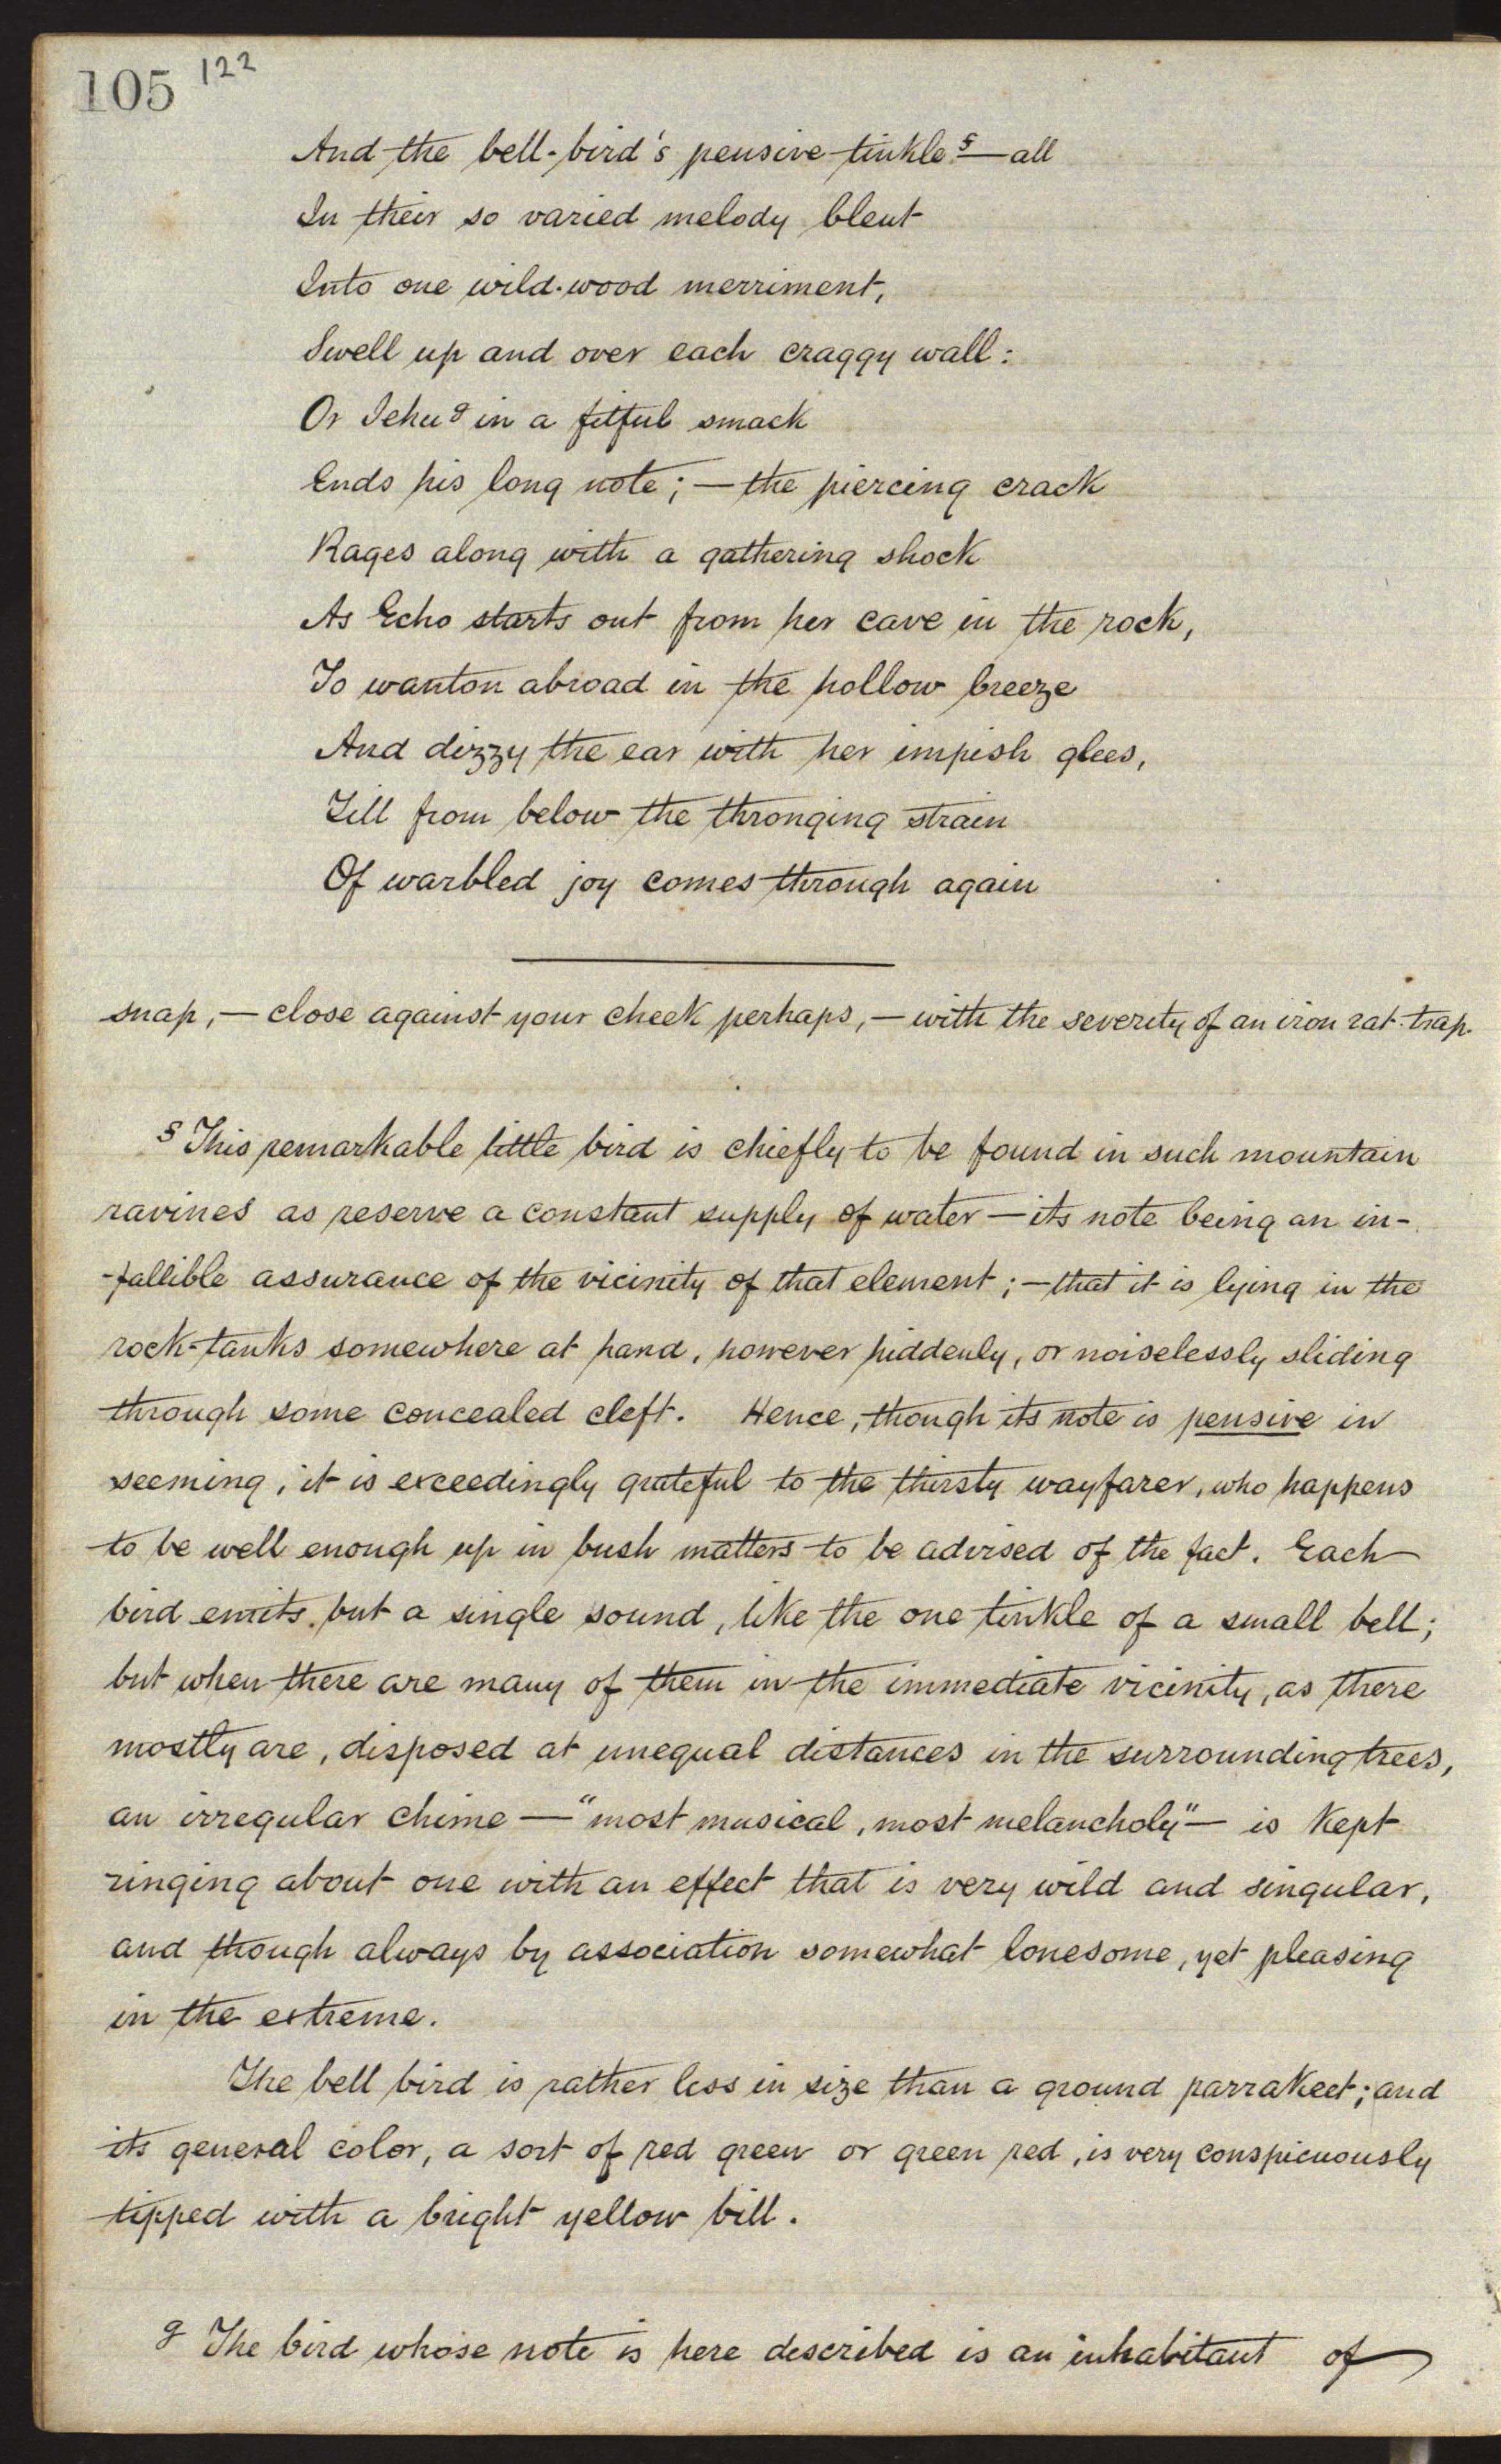 105 122
And the bell-bird's pensive tinkle §—all
In their so varied melody blent
Into one wild-wood merriment,
Swell up and over each craggy wall:
Or Jehu 9 in a fitful smack
Ends his long note; — the piercing crack
Rages along with a gathering shock
As Echo starts out from her cave in the rock,
To wanton abroad in the hollow breeze
And dizzy the ear with her impish glees,
Till from below the thronging strain
Of warbled joy comes through again
snap, — close against your cheek perhaps, — with the severity of an iron rat-trap.
§ This remarkable little bird is chiefly to be found in such mountain
ravines as reserve a constant supply of water — its note being an in-
-fallible assurance of the vicinity of that element; — that it is lying in the
rock-tanks somewhere at hand, however hiddenly, or noiselessly sliding
through some concealed cleft. Hence, though its note is pensive in
seeming, it is exceedingly grateful to the thirsty wayfarer, who happens
to be well enough up in bush matters to be advised of the fact. Each
bird emits but a single sound, like the one tinkle of a small bell;
but when there are many of them in the immediate vicinity, as there
mostly are, disposed at unequal distances in the surrounding trees,
an irregular chime — "most musical, most melancholy" — is kept
ringing about one with an effect that is very wild and singular,
and though always by association somewhat lonesome, yet pleasing
in the extreme.
The bell bird is rather less in size than a ground parrakeet; and
its general color, a sort of red green or green red, is very conspicuously
tipped with a bright yellow bill.
9 The bird whose note is here described is an inhabitant of